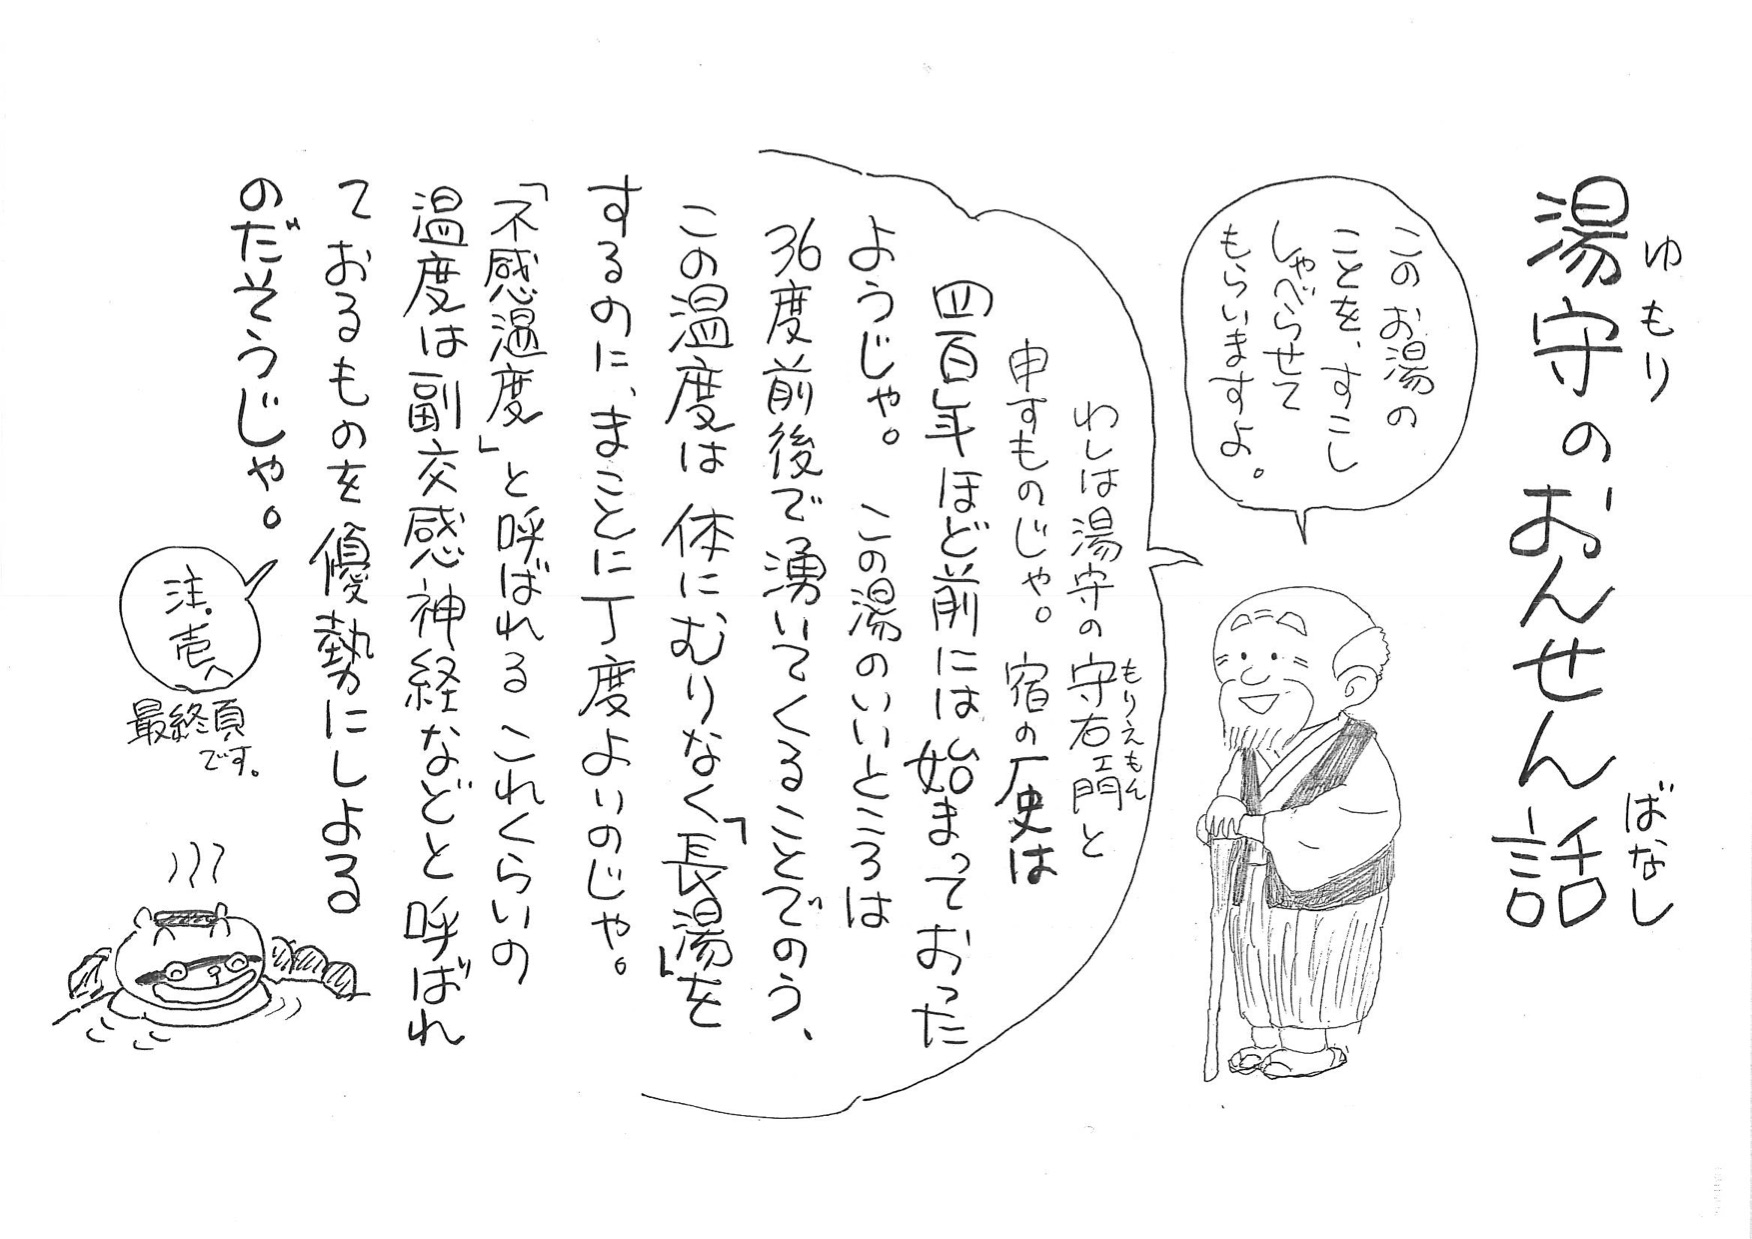 湯守のおんせん話
ゆもり
ばなし
このお湯の
ことを、すこし
しゃべらせて
もらいますよ。
わしは湯守の守右エ門と
もりえもん
申すものじゃ。宿の歴史は
四百年ほど前には始まっておった
ようじゃ。この湯のいいところは
36度前後で湧いてくることでのう、
この温度は体にむりなく「長湯」を
するのに、まことに丁度よいのじゃ。
「不感温度」と呼ばれるこれくらいの
温度は副交感神経などと呼ばれ
ておるものを優勢にしよる
のだそうじゃ。
注.壱へ
最終頁
です。